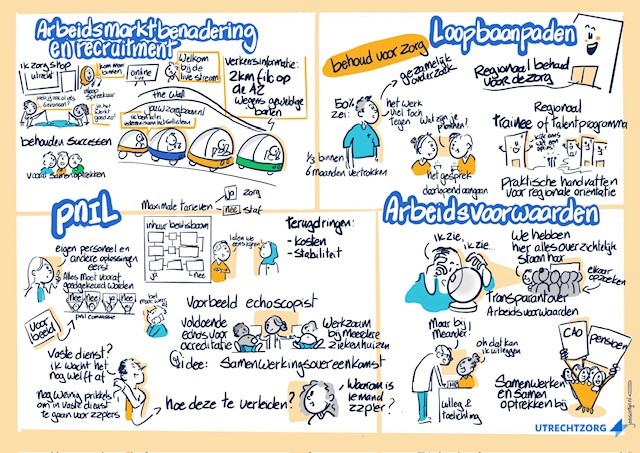 Arbeidsmarktbenadering
en recruitment
ik zorg shop
utrecht
kom maar
binnen
inloop
spreekuur
online
live
Welkom
bij de
live stream
verkeersinformatie:
2 km file op
de A2
wegens geweldige
banen
the wall
jouwzorgbaan.nl
ik het
werkt
goed zo!
behouden successen
voor samen optrekken
Loopbaanpaden
behoud voor zorg
gezamenlijk
onderzoek
50%
zei:
het werk
viel toch
tegen
1/3 binnen
6 maanden vertrokken
Wat zijn je
plannen?
het gesprek
doorlopend aangaan
Regionaal behoud
voor de zorg
Regionaal
trainee of talentprogramma
kijk ons
wel een
Praktische handvatten
voor regionale orientatie
PNIL
Maximale tarieven
ja zorg
nee staf
inhuur beslisboom
ja
nee
laten we
eens kijken
terugdringen:
- kosten
- stabiliteit
eigen personeel en
andere oplossingen
eerst
Alles moet vooraf
goedgekeurd worden
nee nee ja nee
pnil commissie
bel
maar
Voorbeeld echoscopist
voldoende
echos voor
accreditatie
Werkzaam
bij meerdere
ziekenhuizen
idee: Samenwerkingsovereenkomst
voor
beeld
Vaste dienst?
ik wacht het
nog wel ff af
nog weinig prikkels
om in vaste dienst
te gaan voor zzpers
hoe deze te verleiden?
Waarom is
iemand
zzper?
Arbeidsvoorwaarden
ik zie,
ik zie...
We hebben
hier alles overzichtelijk
staan hoor
elkaar
opzoeken
Transparant over
Arbeidsvoorwaarden
Maar bij
Meander!
oh dat kan
ik uitleggen
uitleg &
toelichting
CAO
PENSIOEN
Samenwerken
en samen
optrekken bij
UTRECHTZORG